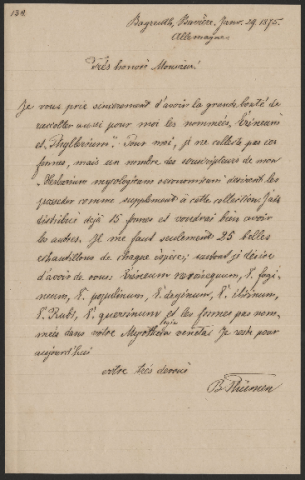 134.
Bayreuth, Bavière, Janv. 29. 1875.
Allemagne.
Très honoré Monsieur!
Je vous prie sincerement d'avoir la grande bonté de
recolter aussi pour moi les nommées „Erineum
et Phyllerium". Pour moi, je ne collets pas ces
formes, mais un nombre des souscripteurs de mon
„Herbarium mycologicum oeconomicum" desirent les
posseder comme supplement à cette collection. J'ai
distribué déjà 15 formes et voudrai bien avoir
les autres. Je me faut seulement 25 belles
échantillons de chaque espèce; surtout je désire
d'avoir de vous: Erineum
num, E. populinum, E. faginum, E. ilicinum,
E. Rubi, E. quercinum et les formes pas nom-
meés dans votre
aujourd'hui
votre très devoué
B Thümen